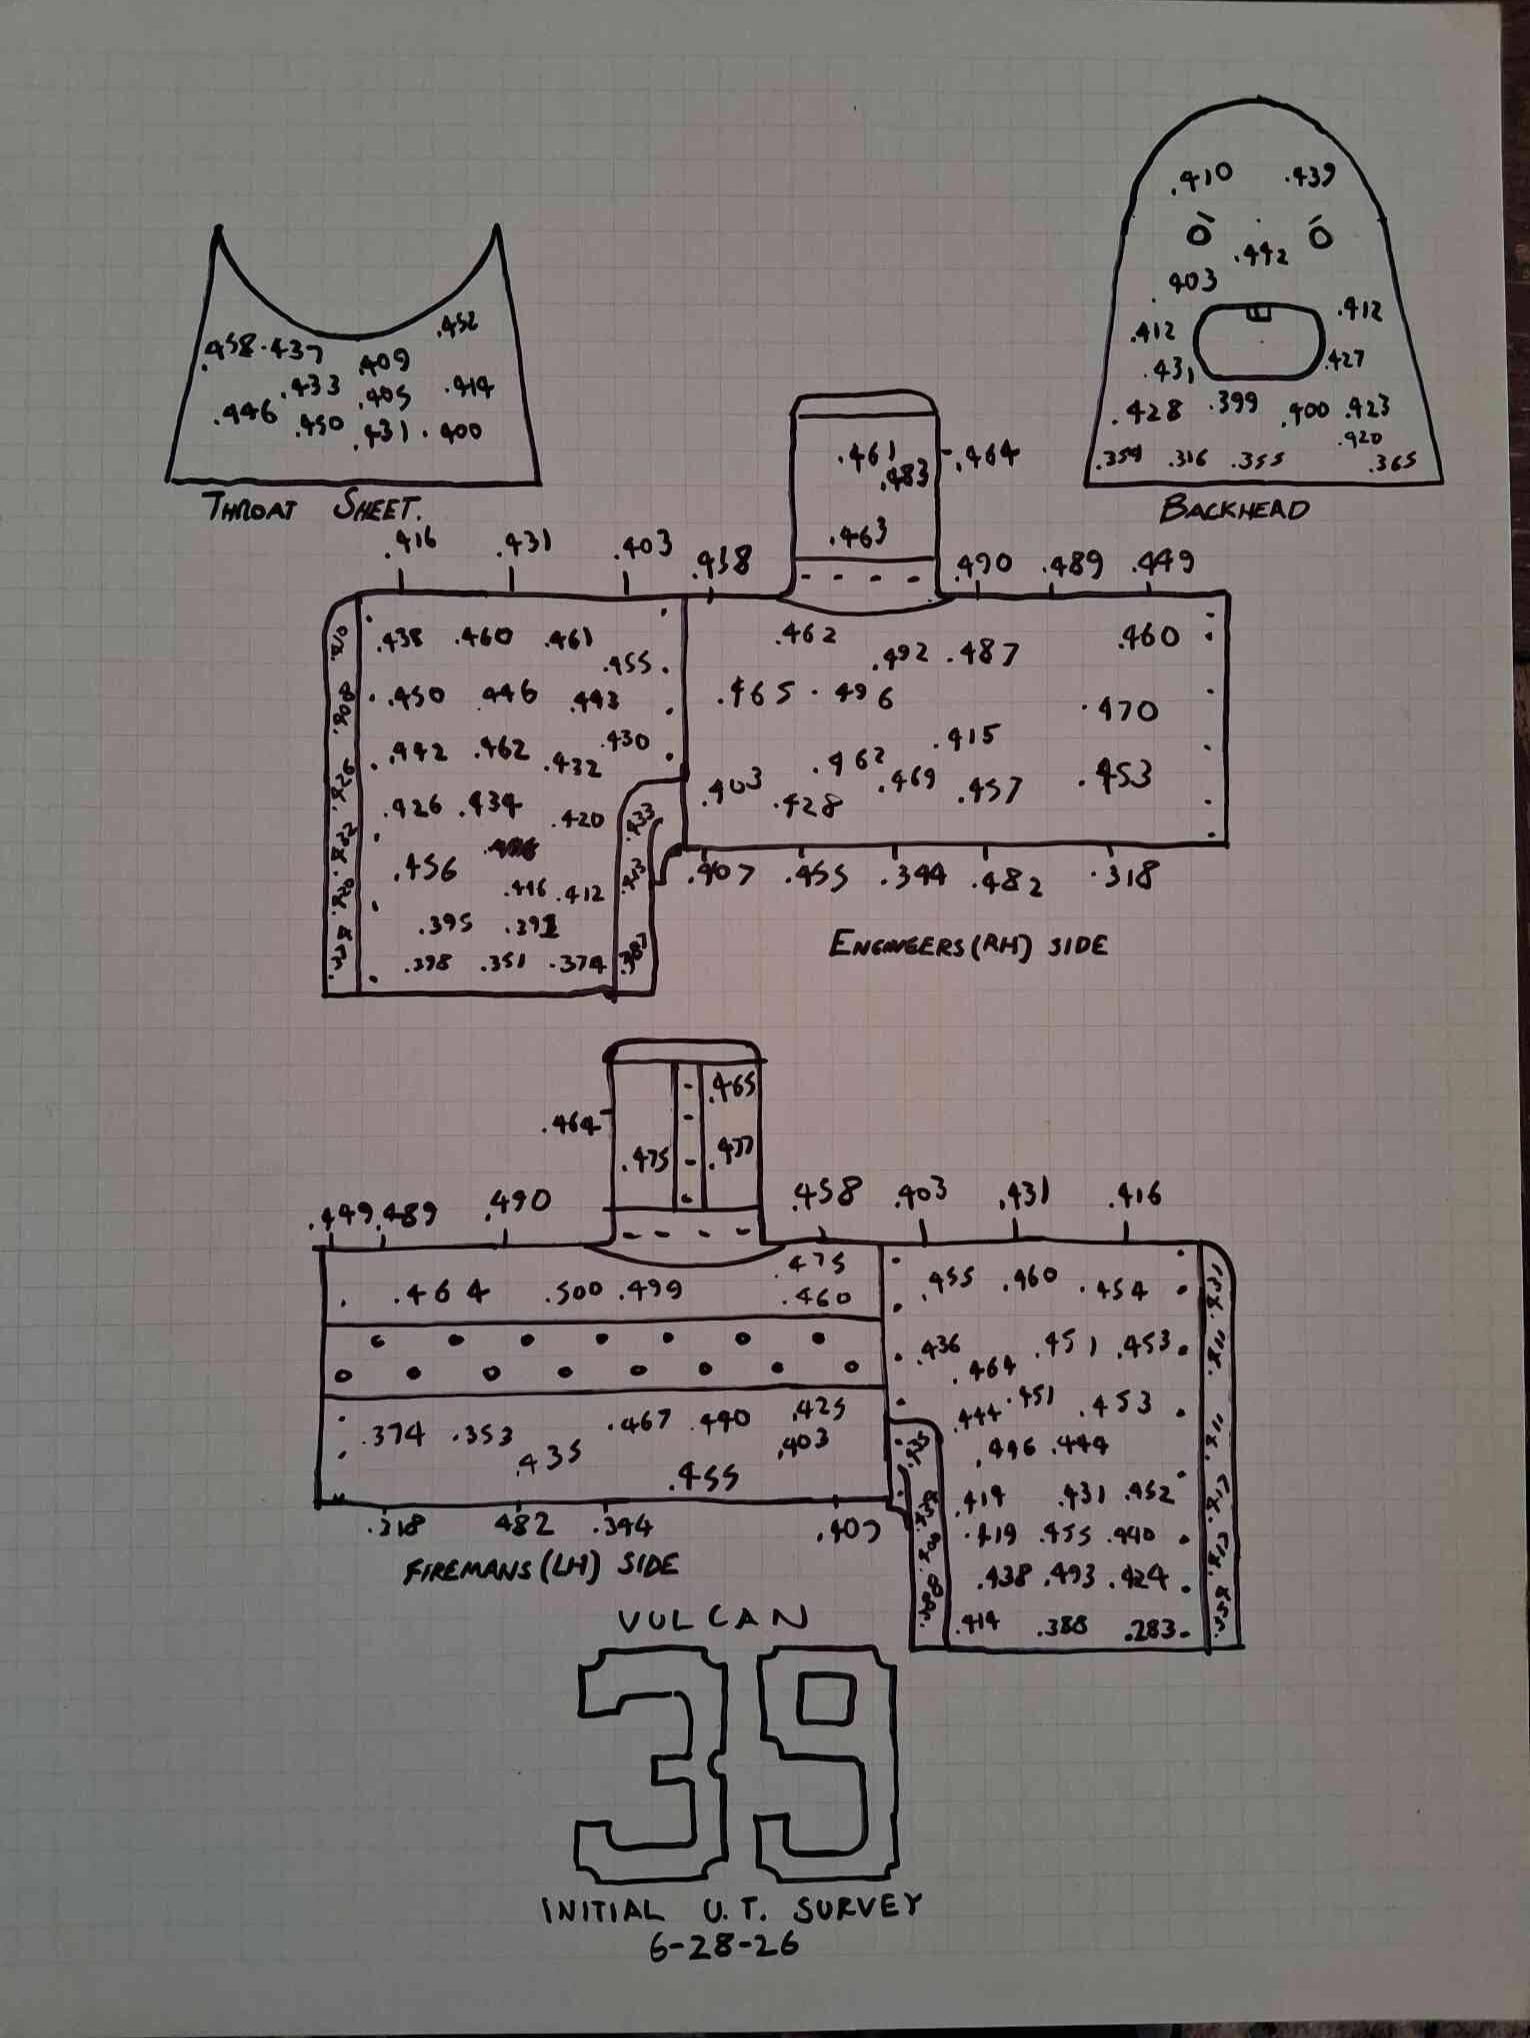 .410 .439
.442
.403
.412 .412
.431 .427
.428 .399 .400 .423
.420
.316 .355 .365
BACKHEAD
.452
.458 .437 .409
.433 .405 .414
.446 .450 .431 .400
THROAT SHEET.
.461 .464
.483
.463
.416 .431 .403 .438 .490 .489 .449
.438 .460 .461
.455
.450 .446 .443
.442 .462 .430
.432
.426 .434 .420 .433
.456
.446 .412
.395
.398 .351 .374 .387
.410
.408
.426
.432
.420
.462 .492 .487 .460
.465 .496 .470
.415
.403 .462 .469 .457 .453
.428
.407 .455 .344 .482 .318
ENGINEERS (RH) SIDE
.465
.464
.475 .477
.449 .489 .490 .458 .403 .431 .416
.464 .500 .499 .475
.460
.374 .353 .467 .490 .425
.435 .403
.455
.318 482 .344 .407
.455 .460 .454
.436 .451 .453
.464
.444 .451 .453
.446 .444
.419 .431 .452
.419 .455 .440
.438 .493 .424
.414 .388 .283
FIREMANS (LH) SIDE
VULCAN
39
INITIAL U.T. SURVEY
6-28-26